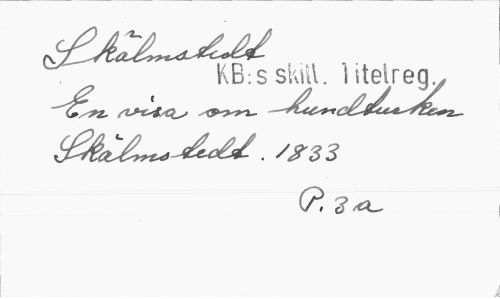 Skälmstedt
KB:s skill. Titelreg.
En visa om hundturken
Skälmstedt. 1833
P. 3 a